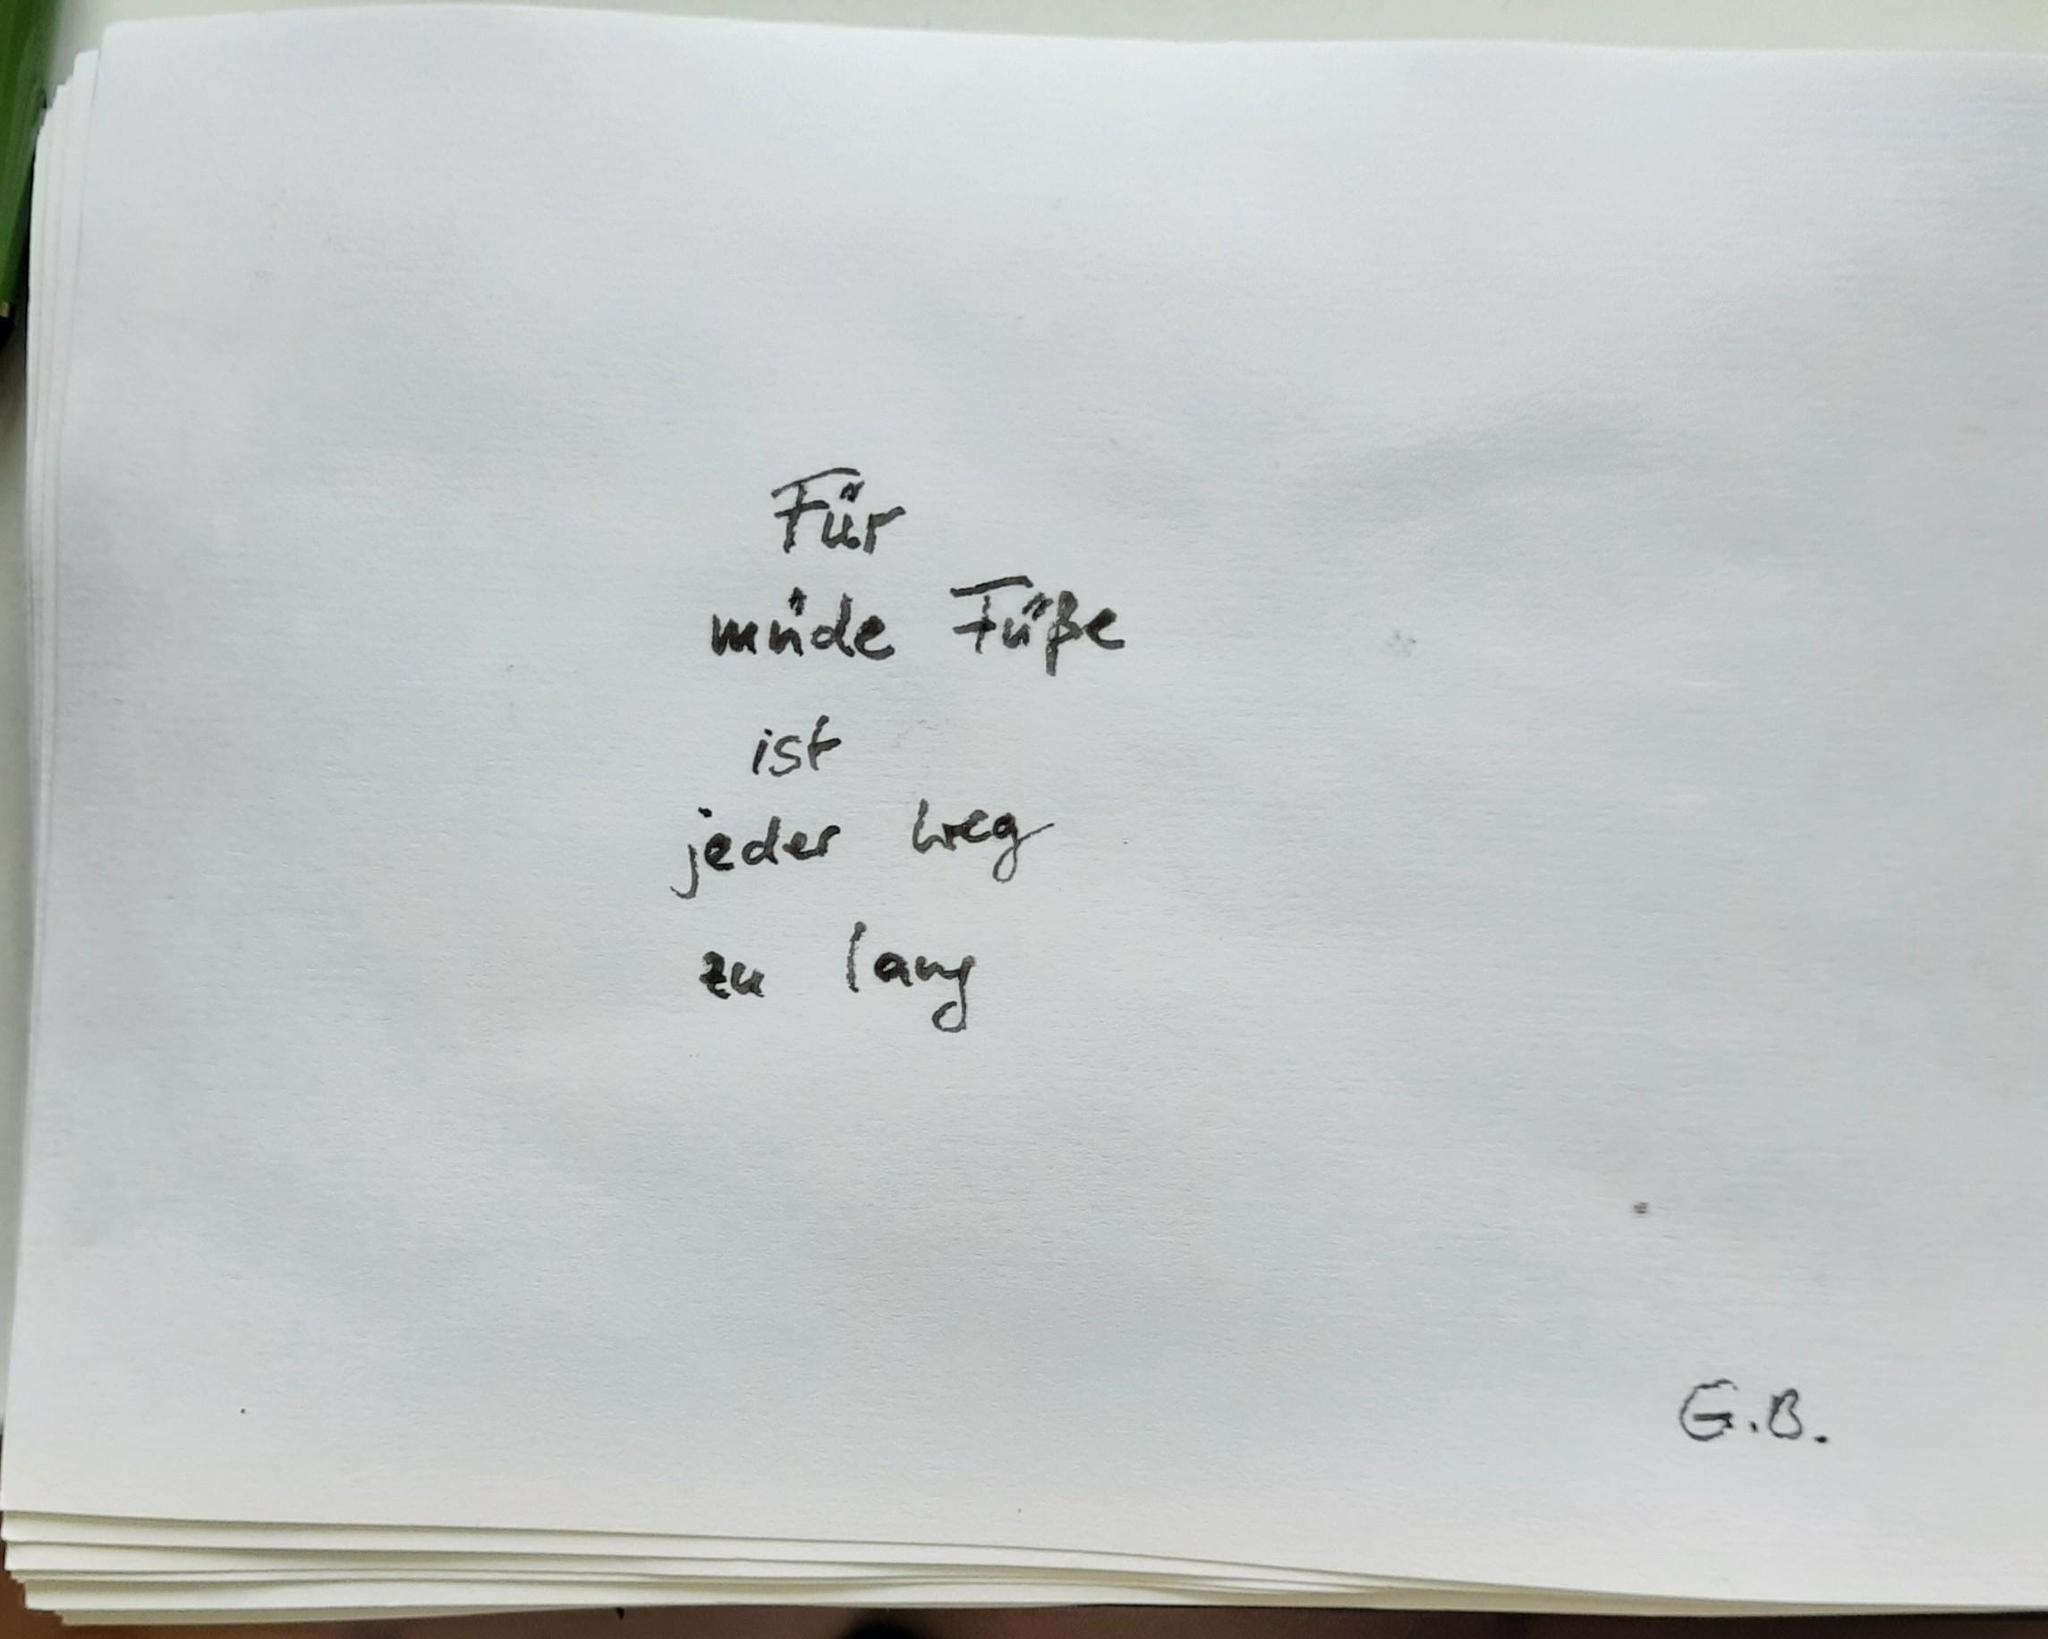 Für
müde Füße
ist
jeder Weg
zu lang
G.B.